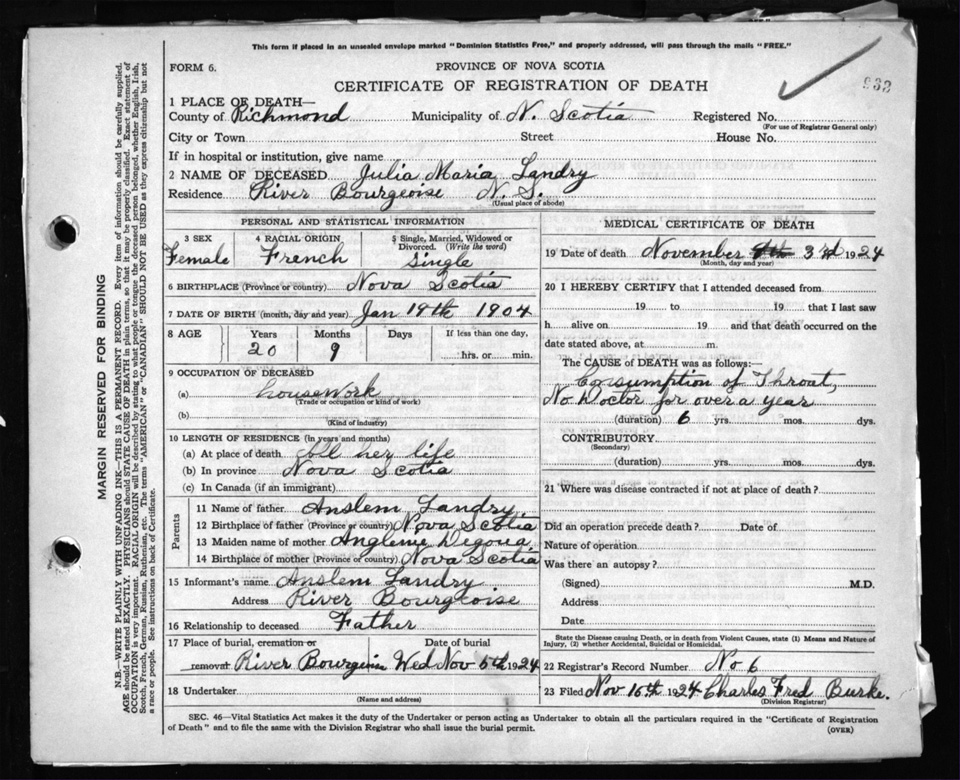 This form if placed in an unsealed envelope marked "Dominion Statistics Free," and properly addressed, will pass through the mails "FREE."
FORM 6.
PROVINCE OF NOVA SCOTIA
CERTIFICATE OF REGISTRATION OF DEATH
933
1 PLACE OF DEATH—
County of Richmond Municipality of N. Scotia Registered No.
(For use of Registrar General only)
City or Town Street House No.
If in hospital or institution, give name
2 NAME OF DECEASED Julia Maria Landry
Residence River Bourgeoise N. S.
(Usual place of abode)
PERSONAL AND STATISTICAL INFORMATION
3 SEX 4 RACIAL ORIGIN 5 Single, Married, Widowed or Divorced. (Write the word)
Female French Single
6 BIRTHPLACE (Province or country) Nova Scotia
7 DATE OF BIRTH (month, day and year) Jan 19th 1904
8 AGE Years Months Days If less than one day,
20 9 hrs. or min.
9 OCCUPATION OF DECEASED
(a) housework
(Trade or occupation or kind of work)
(b)
(Kind of industry)
10 LENGTH OF RESIDENCE (in years and months)
(a) At place of death all her life
(b) In province Nova Scotia
(c) In Canada (if an immigrant)
Parents
11 Name of father Anslem Landry
12 Birthplace of father (Province or country) Nova Scotia
13 Maiden name of mother Angleme Degoua
14 Birthplace of mother (Province or Country) Nova Scotia
15 Informant's name Anslem Landry
Address River Bourgeoise
16 Relationship to deceased Father
17 Place of burial, cremation or Date of burial
removal River Bourgeoise Wed Nov 5th 1924
18 Undertaker
(Name and address)
MEDICAL CERTIFICATE OF DEATH
19 Date of death November 4th 3rd 1924
(Month, day and year)
20 I HEREBY CERTIFY that I attended deceased from
19 to 19 that I last saw
h alive on 19 and that death occurred on the
date stated above, at m.
The CAUSE OF DEATH was as follows:
Consumption of Throat,
No Doctor for over a year
(duration) 6 yrs. mos. dys.
CONTRIBUTORY
(Secondary)
(duration) yrs. mos. dys.
21 Where was disease contracted if not at place of death?
Did an operation precede death? Date of
Nature of operation
Was there an autopsy?
(Signed) M.D.
Address
Date
State the Disease causing Death, or in death from Violent Causes, state (1) Means and Nature of
Injury, (2) whether Accidental, Suicidal or Homicidal.
22 Registrar's Record Number No 6
23 Filed Nov 16th 1924 Charles Fred Burke.
(Division Registrar)
SEC. 46—Vital Statistics Act makes it the duty of the Undertaker or person acting as Undertaker to obtain all the particulars required in the "Certificate of Registration
of Death" and to file the same with the Division Registrar who shall issue the burial permit.
(OVER)
MARGIN RESERVED FOR BINDING
N.B.—WRITE PLAINLY WITH UNFADING INK—THIS IS A PERMANENT RECORD. Every item of information should be carefully supplied.
AGE should be stated EXACTLY. PHYSICIANS should STATE CAUSE OF DEATH in plain terms, so that it may be properly classified. Exact statement of
OCCUPATION is very important. RACIAL ORIGIN will be described by stating to what people or tongue the deceased person belonged, whether English, Irish,
Scotch, French, German, Russian, Ruthenian, etc. The terms "AMERICAN" or "CANADIAN" SHOULD NOT BE USED as they express citizenship but not
a race or people. See instructions on back of Certificate.